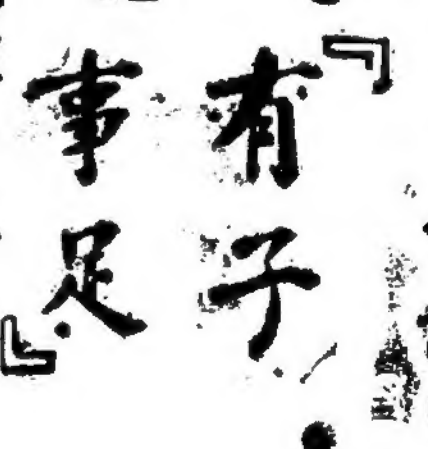 『有子
事足』